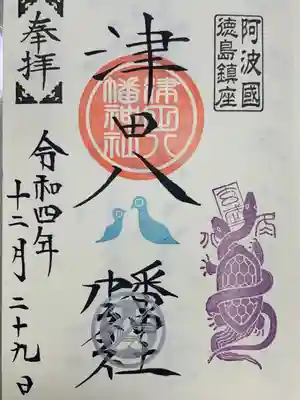 阿波國
徳島鎮座
津田八
幡神社
津田八
幡神社
奉拝
令和四年
十二月二十九日